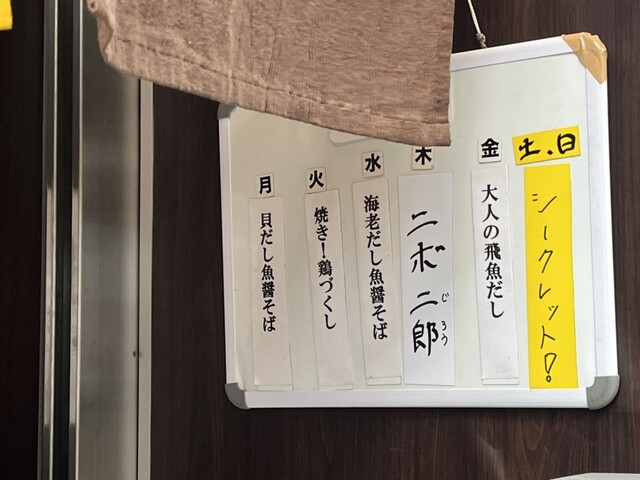 月
貝だし魚醤そば
火
焼き!鶏づくし
水
海老だし魚醤そば
木
ニボ二郎
じろう
金
大人の飛魚だし
土.日
シークレット!